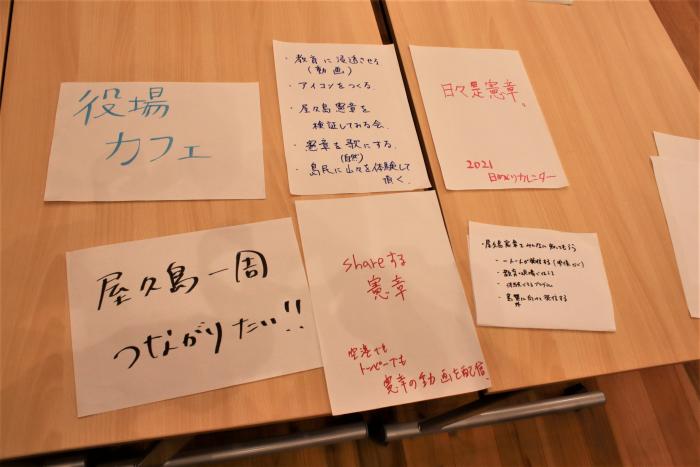 役場
カフェ
・教育に浸透させる
(動画)
・アイコンをつくる
・屋久島憲章を
検証してみる会
・憲章を歌にする
(自然)
・島民に山々を体験して
頂く
日々是憲章。
2021
日めくりカレンダー
屋久島一周
つながりたい!!
shareする
憲章
空港でも
トッピーでも
憲章の動画を配信
・屋久島憲章をみんなに知ってもらう